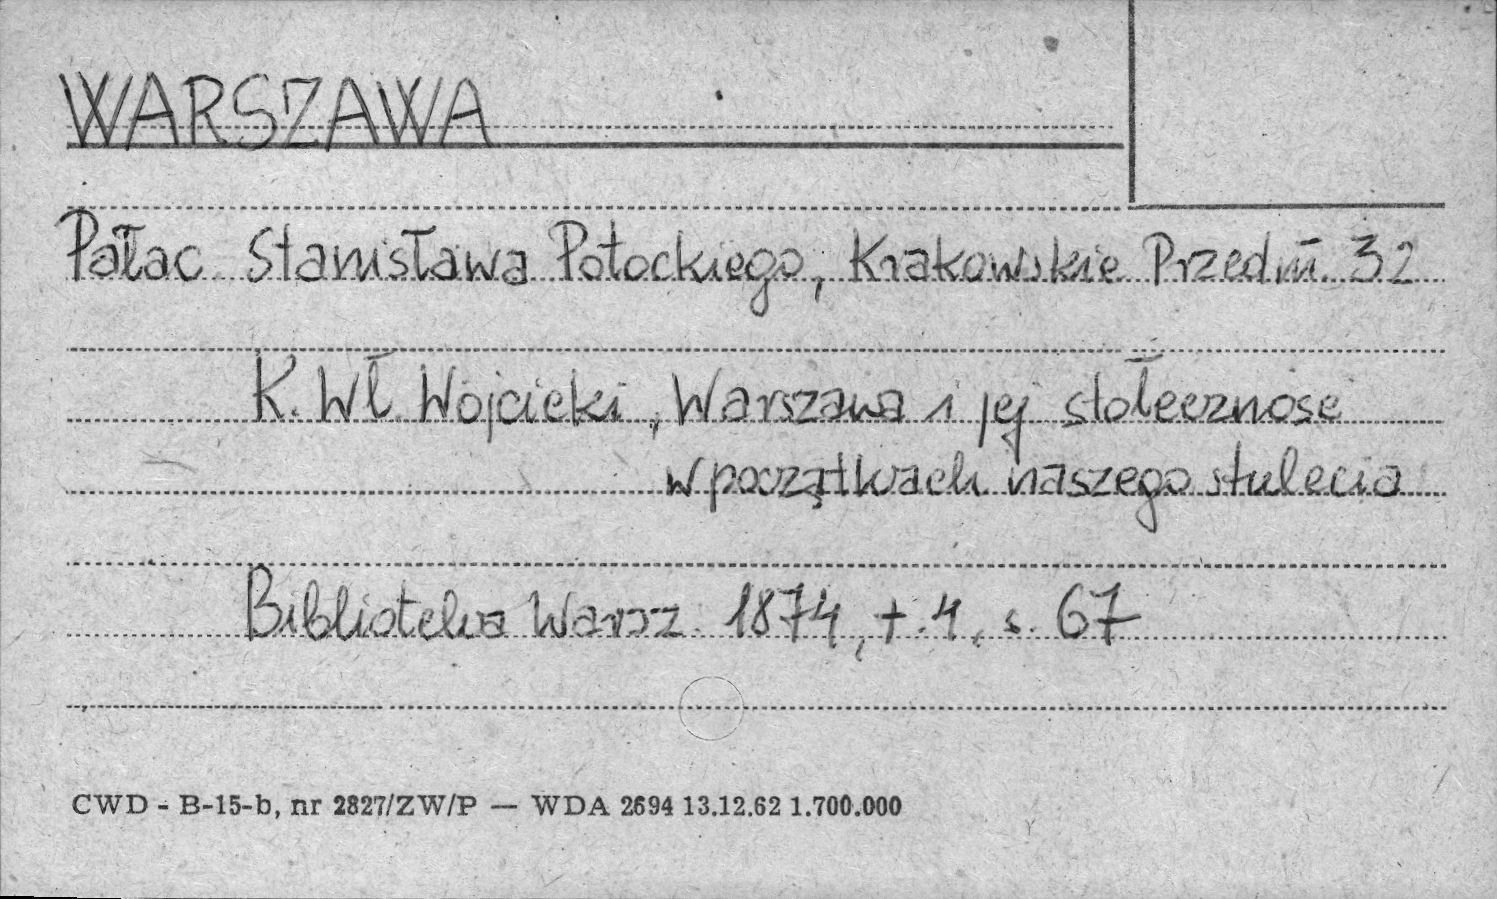 WARSZAWA
Pałac Stanisława Potockiego, Krakowskie Przedm. 32
K. Wł. Wójcicki, Warszawa i jej stołeczność
w początkach naszego stulecia
Biblioteka Warsz. 1874, t. 4, s. 67
CWD - B-15-b, nr 2827/ZW/P — WDA 2694 13.12.62 1.700.000